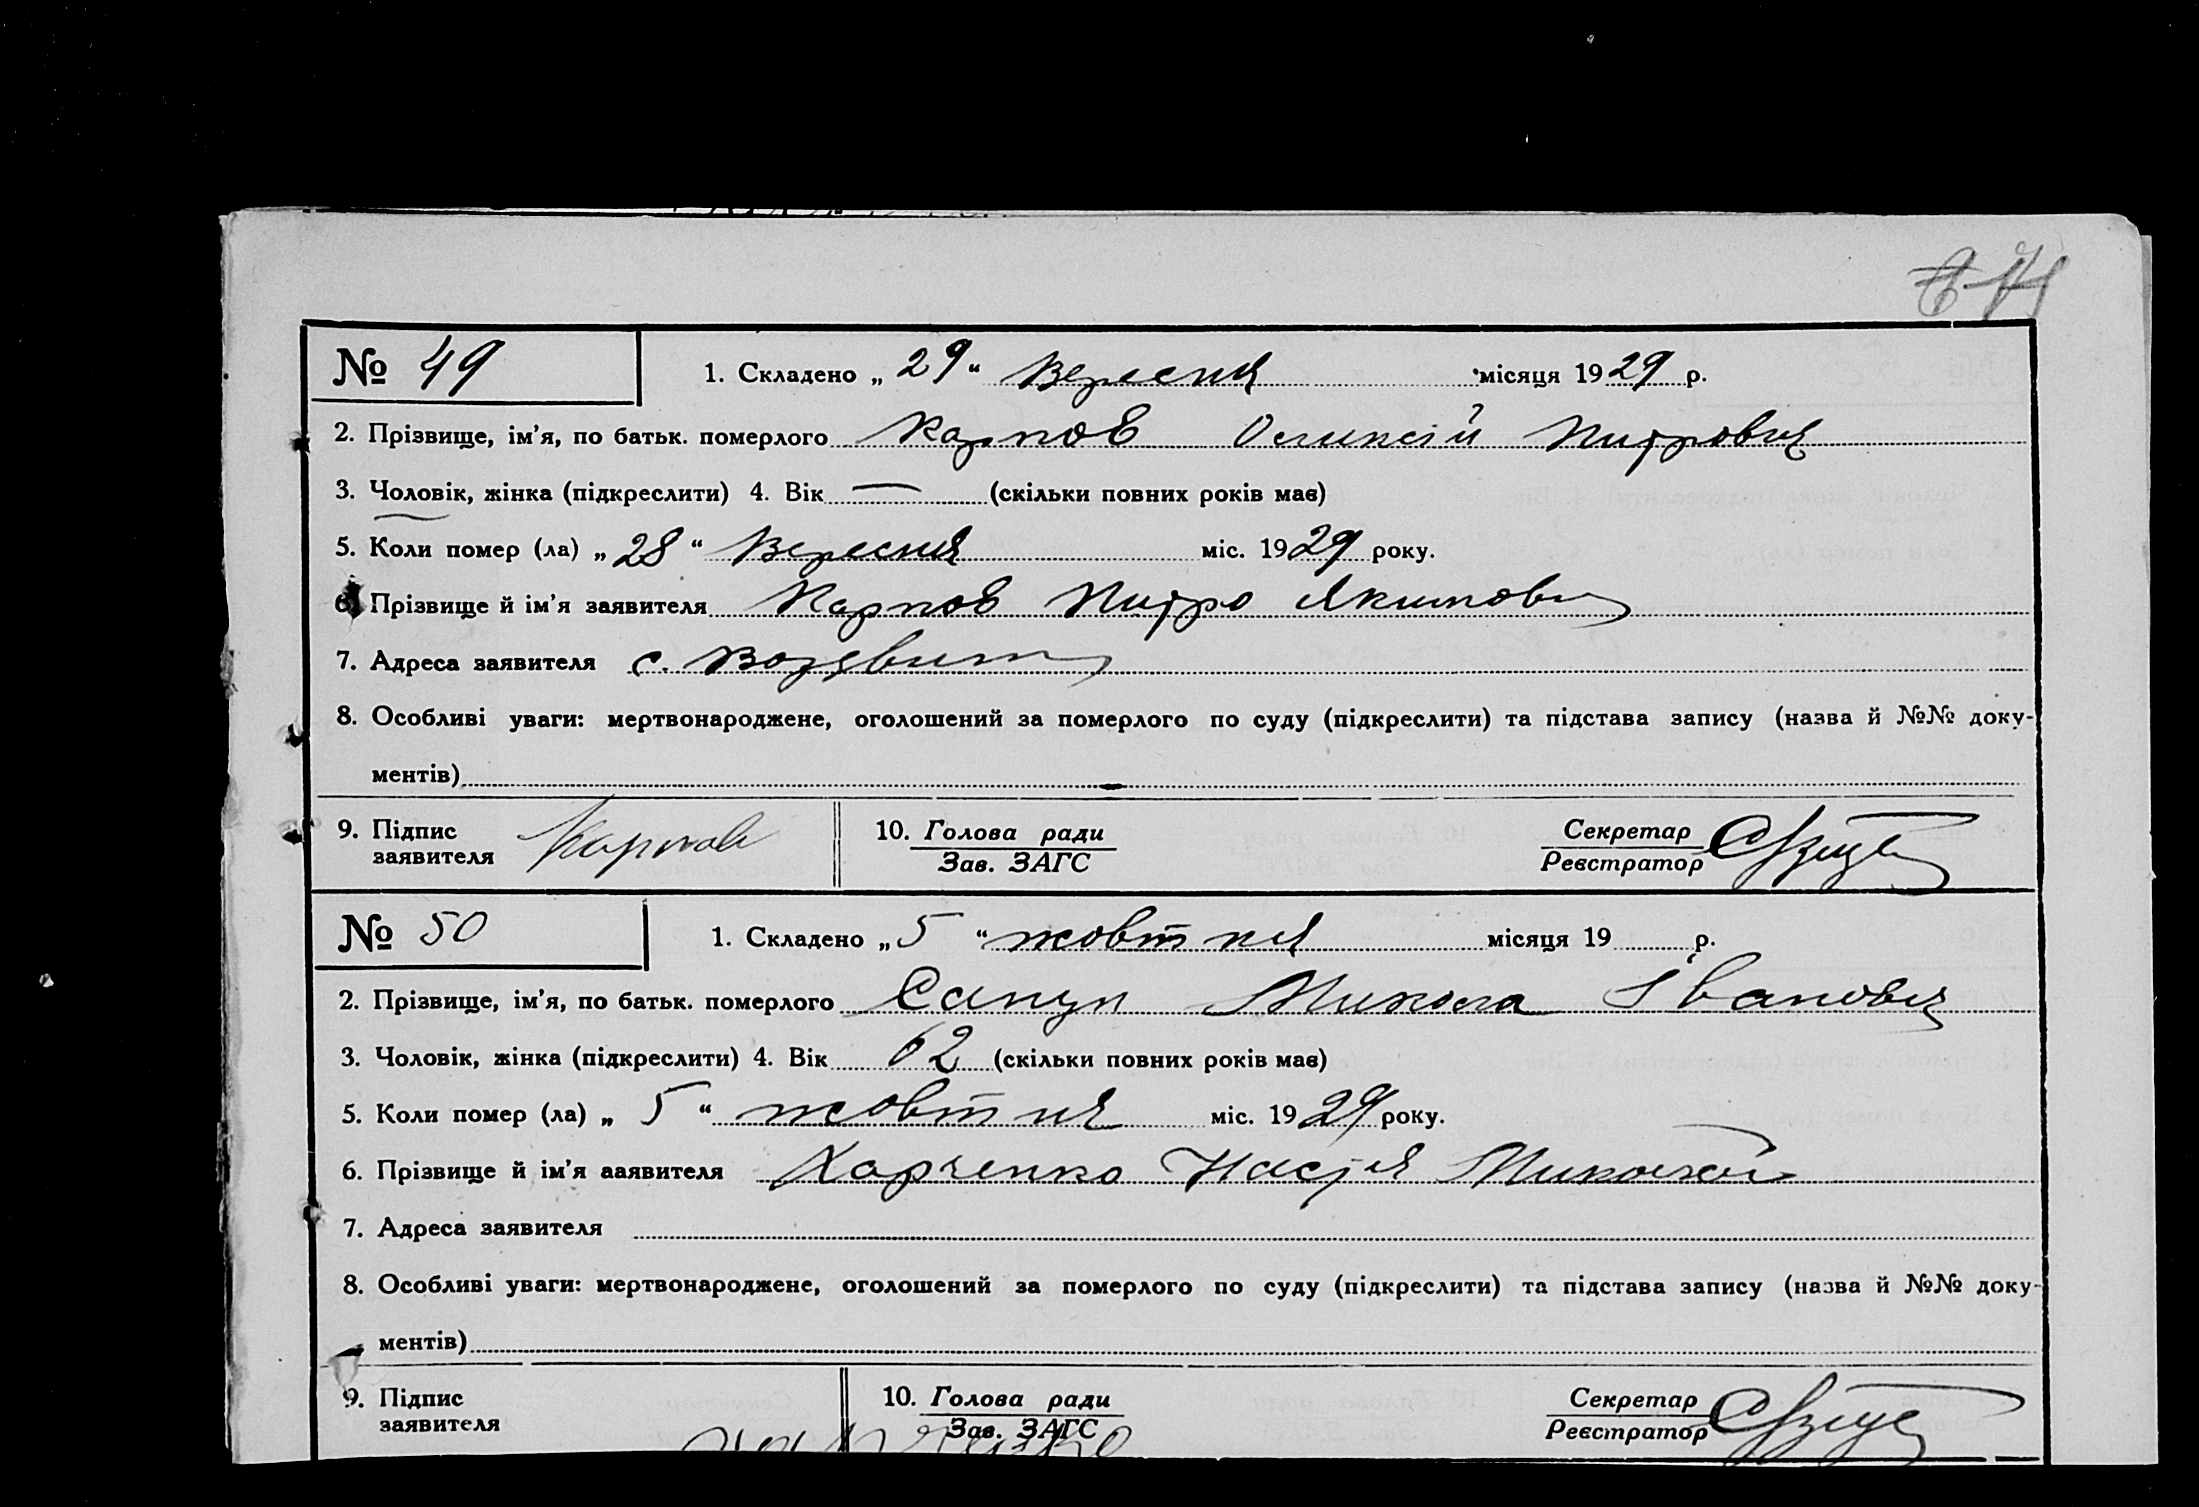 № 49 1. Складено „ 29 “ Вересня місяця 1929 р.
2. Прізвище, ім’я, по батьк. померлого Карпов Олексій Питрович
3. Чоловік, жінка (підкреслити) 4. Вік — (скільки повних років має)
5. Коли помер (ла) „ 28 “ Вересня міс. 1929 року.
6. Прізвище й ім’я заявителя Карпов Питро Якимович
7. Адреса заявителя с.
8. Особливі уваги: мертвонароджене, оголошений за померлого по суду (підкреслити) та підстава запису (назва й №№ доку-
ментів) —
9. Підпис заявителя Карпов 10. Голова ради Зав. ЗАГС Секретар Реєстратор
№ 50 1. Складено „ 5 “ жовтня місяця 19 р.
2. Прізвище, ім’я, по батьк. померлого Сапун Микола Іванович
3. Чоловік, жінка (підкреслити) 4. Вік 62 (скільки повних років має)
5. Коли помер (ла) „ 5 “ жовтня міс. 1929 року.
6. Прізвище й ім’я ааявителя Харченко Настя
7. Адреса заявителя
8. Особливі уваги: мертвонароджене, оголошений за померлого по суду (підкреслити) та підстава запису (назва й №№ доку-
ментів)
9. Підпис заявителя 10. Голова ради Зав. ЗАГС Секретар Реєстратор